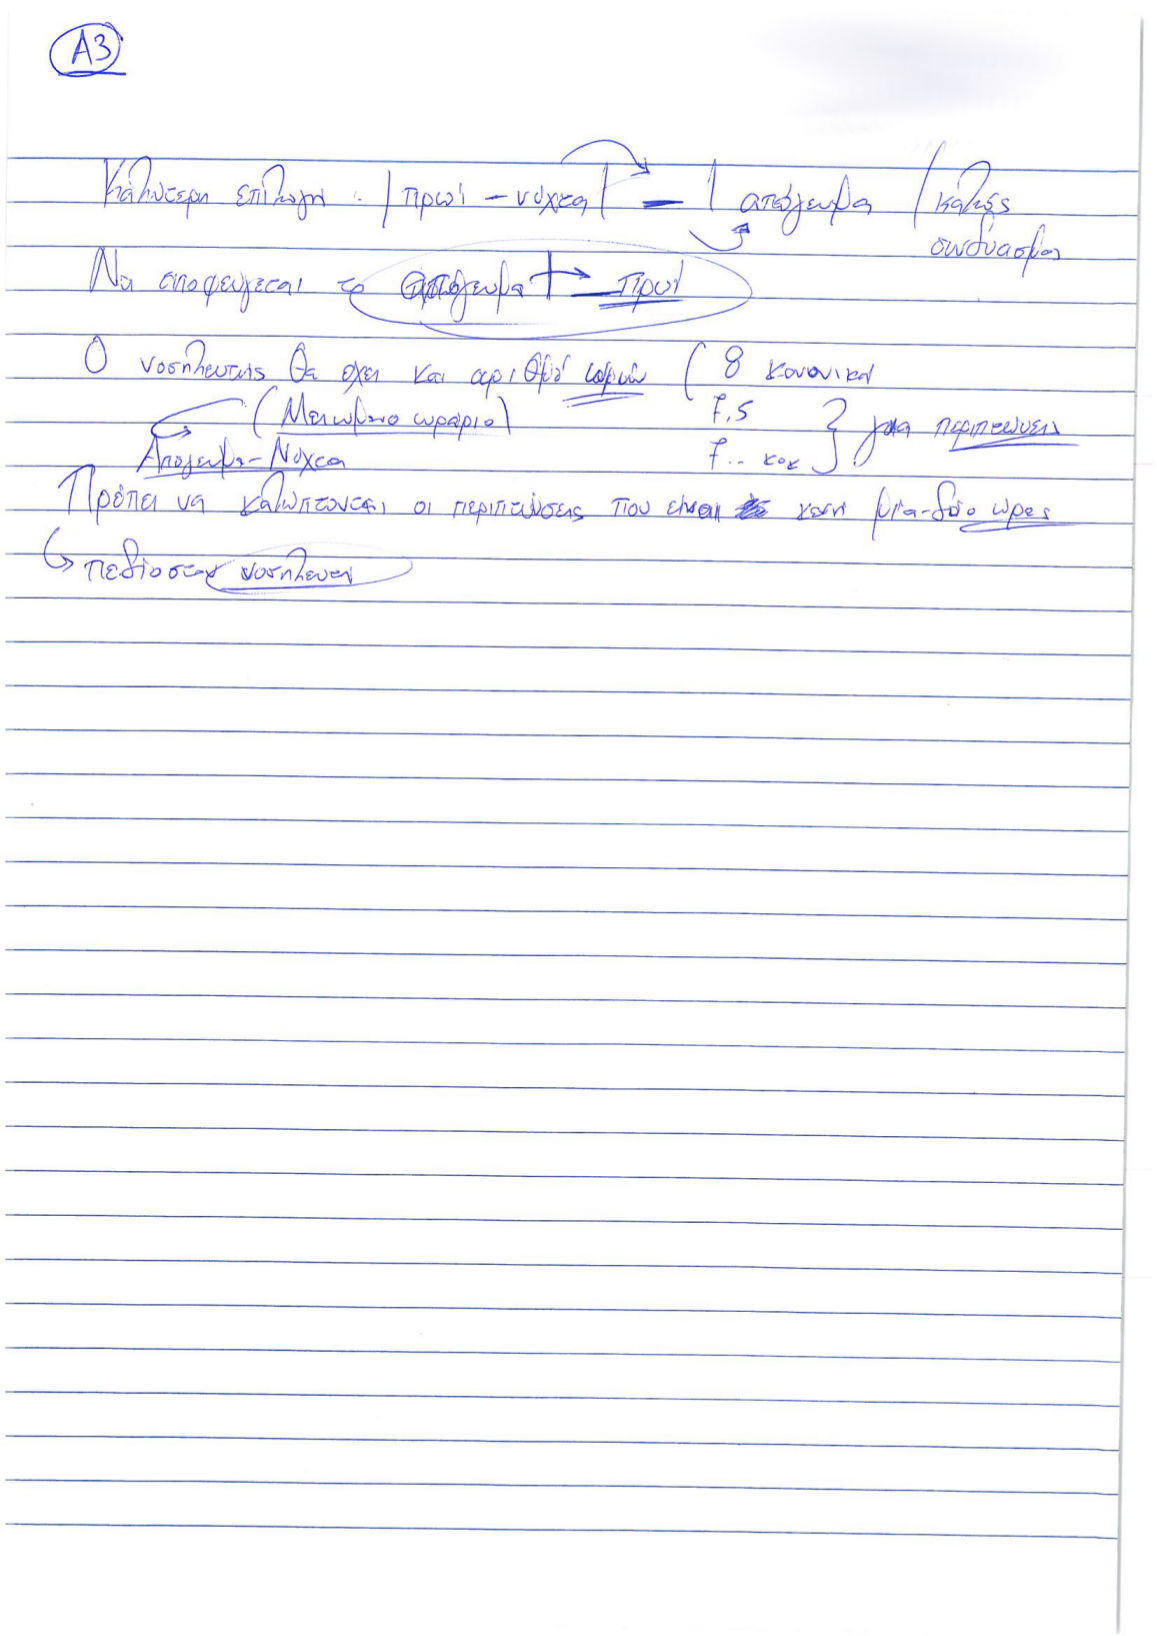 A3
Καλύτερη επιλογή : | πρωί - νύχτα | - | απόγευμα / καλός
συνδυασμός
Να αποφεύγεται το απόγευμα → πρωί
Ο νοσηλευτής θα έχει και αριθμό ωρών ( 8 κανονικά
(Μειωμένο ωράριο) 7,5 } για περιπτώσεις
Απόγευμα - Νύχτα 7.. κοκ
Πρέπει να καλύπτονται οι περιπτώσεις που είναι κενή μία-δύο ώρες
↳ πεδίο στον νοσηλευτή